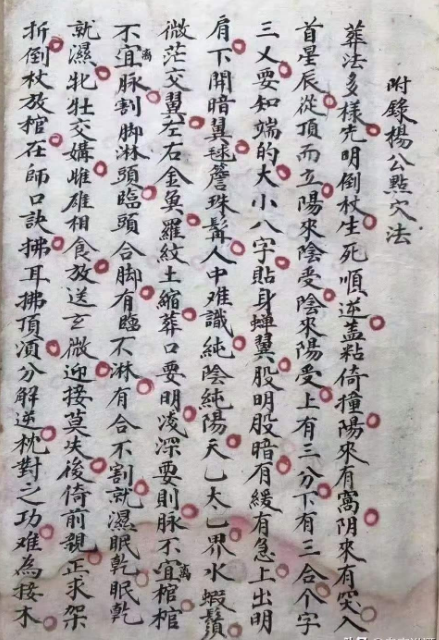 附錄楊公點穴法
葬法多樣先明倒杖生死順逆盖粘倚撞陽來有窩阴來有突入
首星辰從頂而立陽來陰受陰來陽受上有三分下有三合个字
三义要知端的大小八字貼身蟬翼股明股暗有緩有急上出明
肩下開暗翼毬簷珠髯人中难識純陰純陽天乙太乙界水蝦鬚
微茫交翼左右金魚羅紋土縮葬口要明淺深要則脉不宜离棺棺
不宜离脉割脚淋頭臨頭合脚有臨不淋有合不割就濕眠乾眠乾
就濕牝牡交媾雌雄相食放送玄微迎接莫失後倚前親正求架
折倒杖放棺在師口訣拂耳拂頂須分解逆枕對之功难為接木